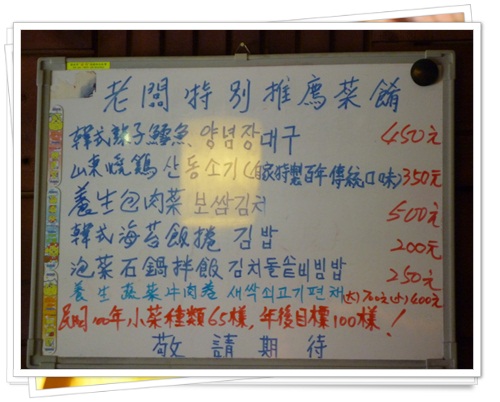 老闆特別推薦菜餚
韓式辣子鱈魚 양념장대구 450元
山東燒鷄 산동소기(自家特製百年傳統口味) 350元
養生包肉菜 보쌈김치 500元
韓式海苔飯捲 김밥 200元
泡菜石鍋拌飯 김치돌솥비빔밥 250元
養生蔬菜牛肉卷 새싹쇠고기편채 (大)700元(小)400元
民國100年小菜種類65樣,年後目標100樣!
敬請期待